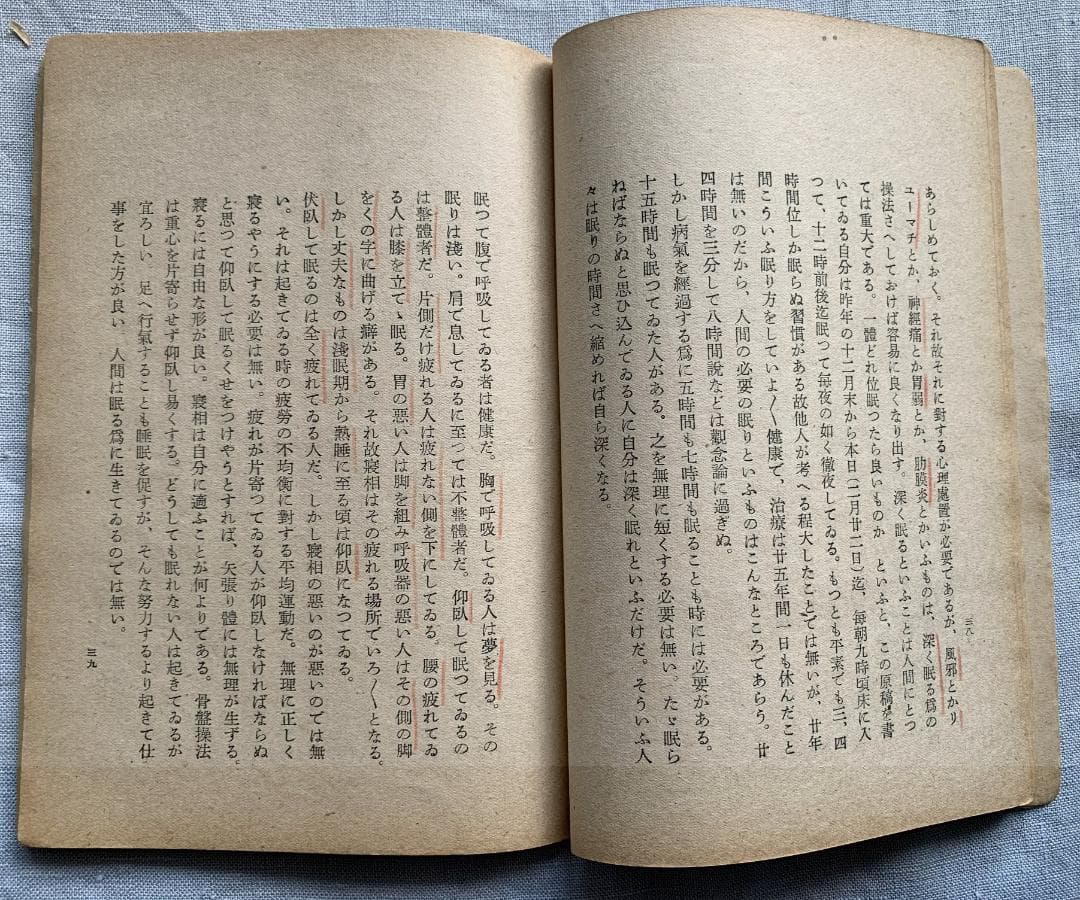 あらしめておく。それ故それに對する心理處置が必要であるが、風邪とかリ
ューマチとか、神經痛とか胃弱とか、肋膜炎とかいふものは、深く眠る爲の
操法さへしておけば容易に良くなり出す。深く眠るといふことは人間にとつ
ては重大である。一體どれ位眠つたら良いものか といふと、この原稿を書
いてゐる自分は昨年の十二月末から本日(二月廿二日)迄、毎朝九時頃床に入
つて、十二時前後迄眠つて毎夜の如く徹夜してゐる。もつとも平素でも三、四
時間位しか眠らぬ習慣がある故他人が考へる程大したことでは無いが、廿年
間こういふ眠り方をしていよ〱健康で、治療は廿五年間一日も休んだこと
は無いのだから、人間の必要の眠りといふものはこんなところであらう。廿
四時間を三分して八時間説などは觀念論に過ぎぬ。
しかし病氣を經過する爲に五時間も七時間も眠ることも時には必要がある。
十五時間も眠つてゐた人がある。之を無理に短くする必要は無い。たゞ眠ら
ねばならぬと思ひ込んでゐる人に自分は深く眠れといふだけだ。そういふ人
々は眠りの時間さへ縮めれば自ら深くなる。
三八
眠つて腹で呼吸してゐる者は健康だ。胸で呼吸してゐる人は夢を見る。その
眠りは淺い。肩で息してゐるに至つては不整體者だ。仰臥して眠つてゐるの
は整體者だ。片側だけ疲れる人は疲れない側を下にしてゐる。腰の疲れてゐ
る人は膝を立てゝ眠る。胃の惡い人は脚を組み呼吸器の惡い人はその側の脚
をくの字に曲げる癖がある。それ故寢相はその疲れる場所でいろ〱となる。
しかし丈夫なものは淺眠期から熟睡に至る頃は仰臥になつてゐる。
伏臥して眠るのは全く疲れてゐる人だ。しかし寢相の惡いのが惡いのでは無
い。それは起きてゐる時の疲勞の不均衡に對する平均運動だ。無理に正しく
寢るやうにする必要は無い。疲れが片寄つてゐる人が仰臥しなければならぬ
と思つて仰臥して眠るくせをつけやうとすれば、矢張り體には無理が生ずる。
寢るには自由な形が良い。寢相は自分に適ふことが何よりである。骨盤操法
は重心を片寄らせず仰臥し易くする。どうしても眠れない人は起きてゐるが
宜ろしい 足へ行氣することも睡眠を促すが、そんな努力するより起きて仕
事をした方が良い 人間は眠る爲に生きてゐるのでは無い。
三九